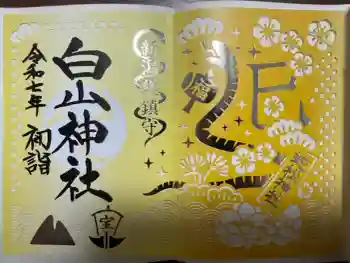 白山神社
令和七年
初詣
新潟総鎮守
福
巳
宝